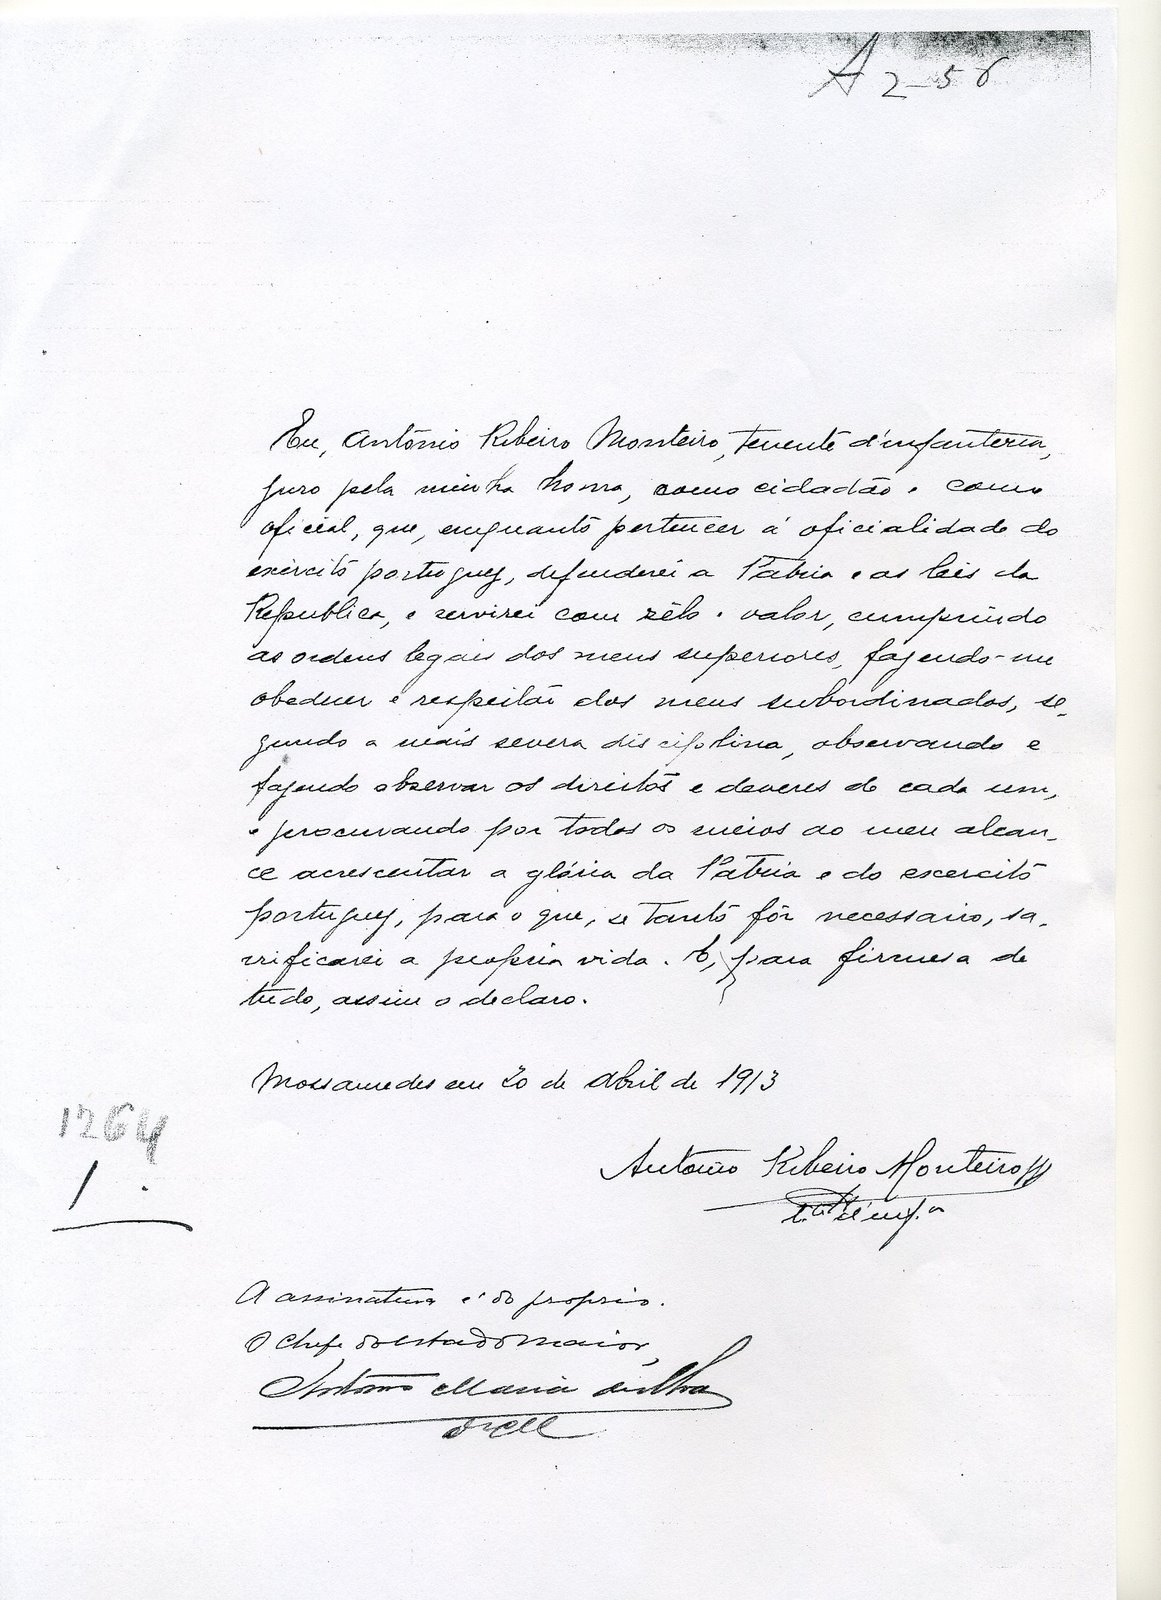 A 2-56
Eu, António Ribeiro Monteiro, tenente d'infanteria,
juro pela minha honra, como cidadão e como
oficial, que, emquanto pertencer á oficialidade do
exército portuguez, defenderei a Pátria e as leis da
Republica, e servirei com zêlo e valor, cumprindo
as ordens legais dos meus superiores, fazendo-me
obedecer e respeitar dos meus subordinados, se-
gundo a mais severa disciplina, observando e
fazendo observar os direitos e deveres de cada um,
e procurando por todos os meios ao meu alcan-
ce acrescentar a glória da Pátria e do exercito
portuguez, para o que, se tanto fôr necessario, sa-
crificarei a propria vida. E, para firmesa de
tudo, assim o declaro.
Mossamedes em 20 de Abril de 1913
António Ribeiro Monteiro
t.te d'inf.a
1264
1
A assinatura é do proprio.
O Chefe do estado maior,
António Maria da Silva